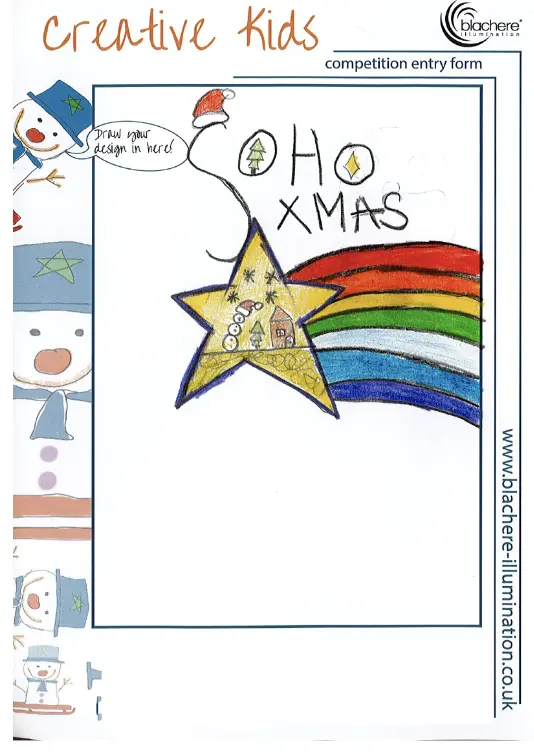 Creative Kids
blachere
illumination
competition entry form
Draw your
design in here!
SOHO
XMAS
www.blachere-illumination.co.uk